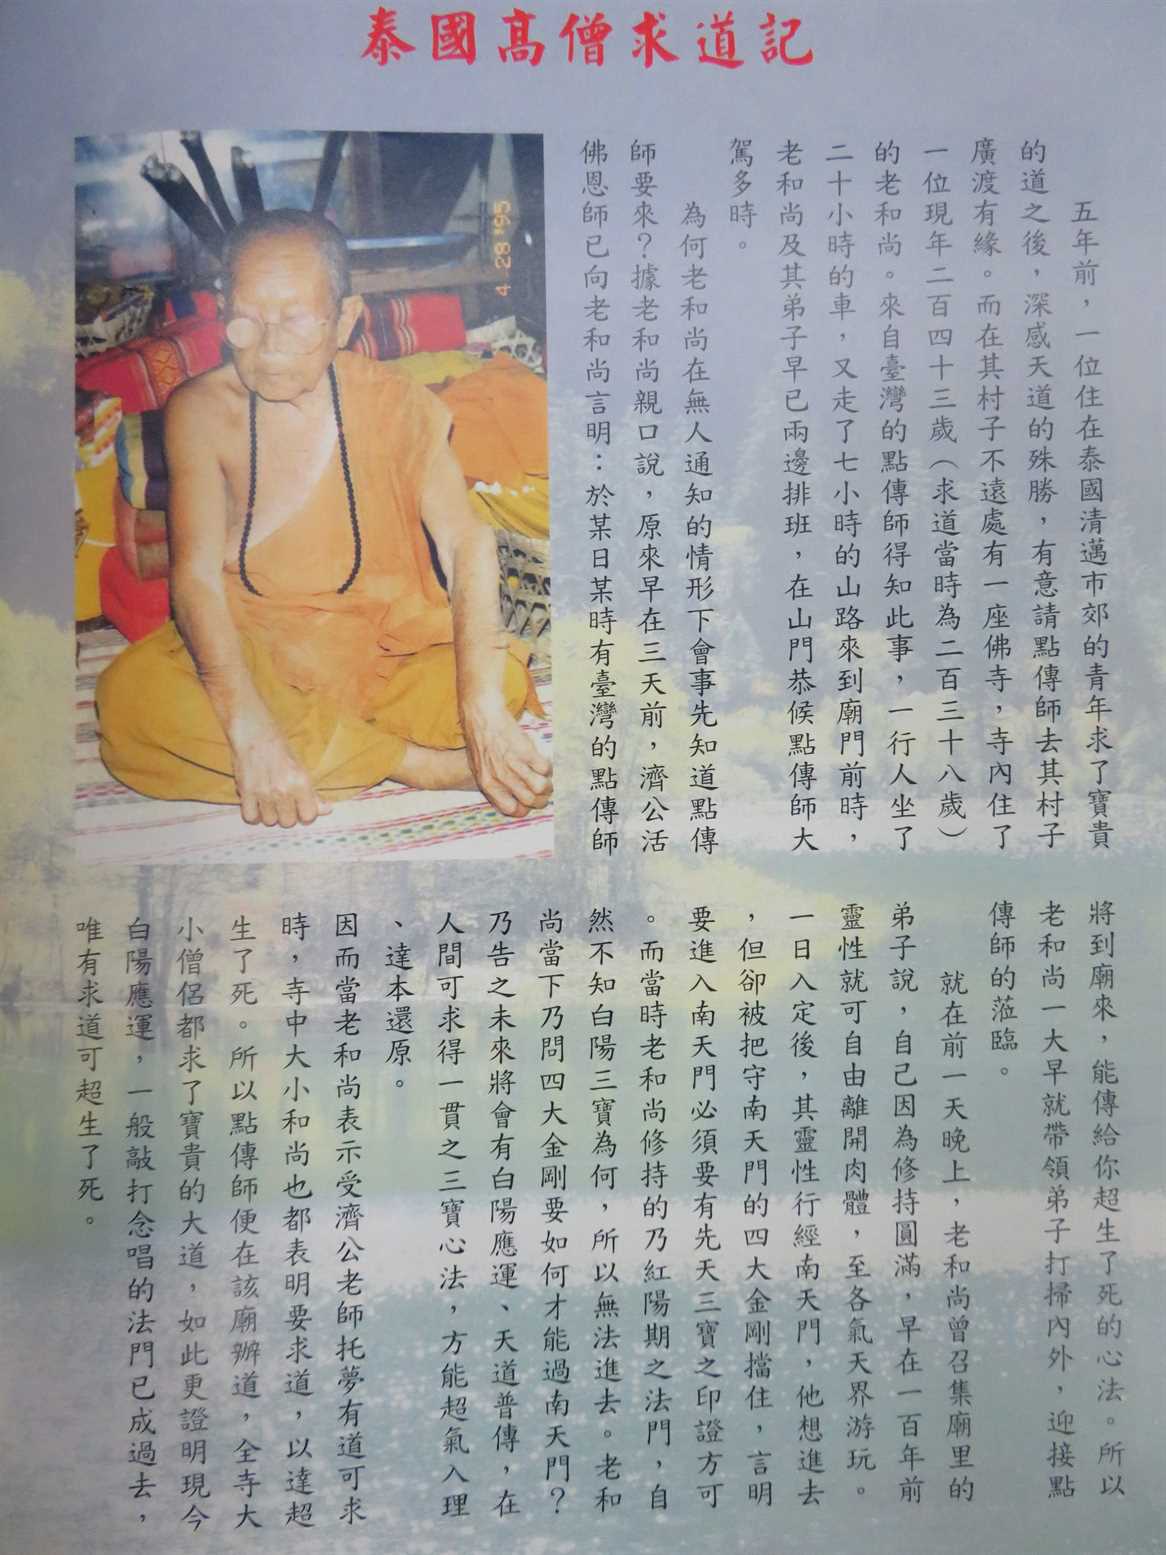 泰國高僧求道記
五年前，一位住在泰國清邁市郊的青年求了寶貴
的道之後，深感天道的殊勝，有意請點傳師去其村子
廣渡有緣。而在其村子不遠處有一座佛寺，寺內住了
一位現年二百四十三歲（求道當時為二百三十八歲）
的老和尚。來自臺灣的點傳師得知此事，一行人坐了
二十小時的車，又走了七小時的山路來到廟門前時，
老和尚及其弟子早已兩邊排班，在山門恭候點傳師大
駕多時。
為何老和尚在無人通知的情形下會事先知道點傳
師要來？據老和尚親口說，原來早在三天前，濟公活
佛恩師已向老和尚言明：於某日某時有臺灣的點傳師
4 28 '95
將到廟來，能傳給你超生了死的心法。所以
老和尚一大早就帶領弟子打掃內外，迎接點
傳師的蒞臨。
就在前一天晚上，老和尚曾召集廟里的
弟子說，自己因為修持圓滿，早在一百年前
靈性就可自由離開肉體，至各氣天界游玩。
一日入定後，其靈性行經南天門，他想進去
，但卻被把守南天門的四大金剛擋住，言明
要進入南天門必須要有先天三寶之印證方可
。而當時老和尚修持的乃紅陽期之法門，自
然不知白陽三寶為何，所以無法進去。老和
尚當下乃問四大金剛要如何才能過南天門？
乃告之未來將會有白陽應運、天道普傳，在
人間可求得一貫之三寶心法，方能超氣入理
、達本還原。
因而當老和尚表示受濟公老師托夢有道可求
時，寺中大小和尚也都表明要求道，以達超
生了死。所以點傳師便在該廟辦道，全寺大
小僧侶都求了寶貴的大道，如此更證明現今
白陽應運，一般敲打念唱的法門已成過去，
唯有求道可超生了死。